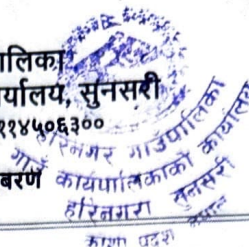 ालिका
र्यालय, सुनसरी
११४५०६३००
बरण
हरिनगर गाउँपालिका
गाउँ कार्यपालिकाको कार्यालय
हरिनगरा सुनसरी
कोशी प्रदेश नेपाल